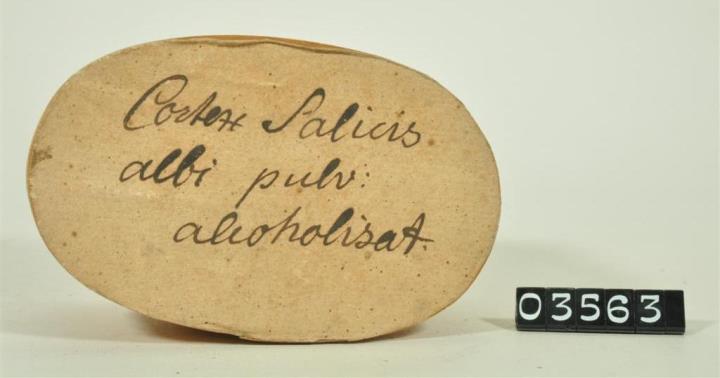 Cortex Salicis
albi pulv:
alcoholisat.
03563